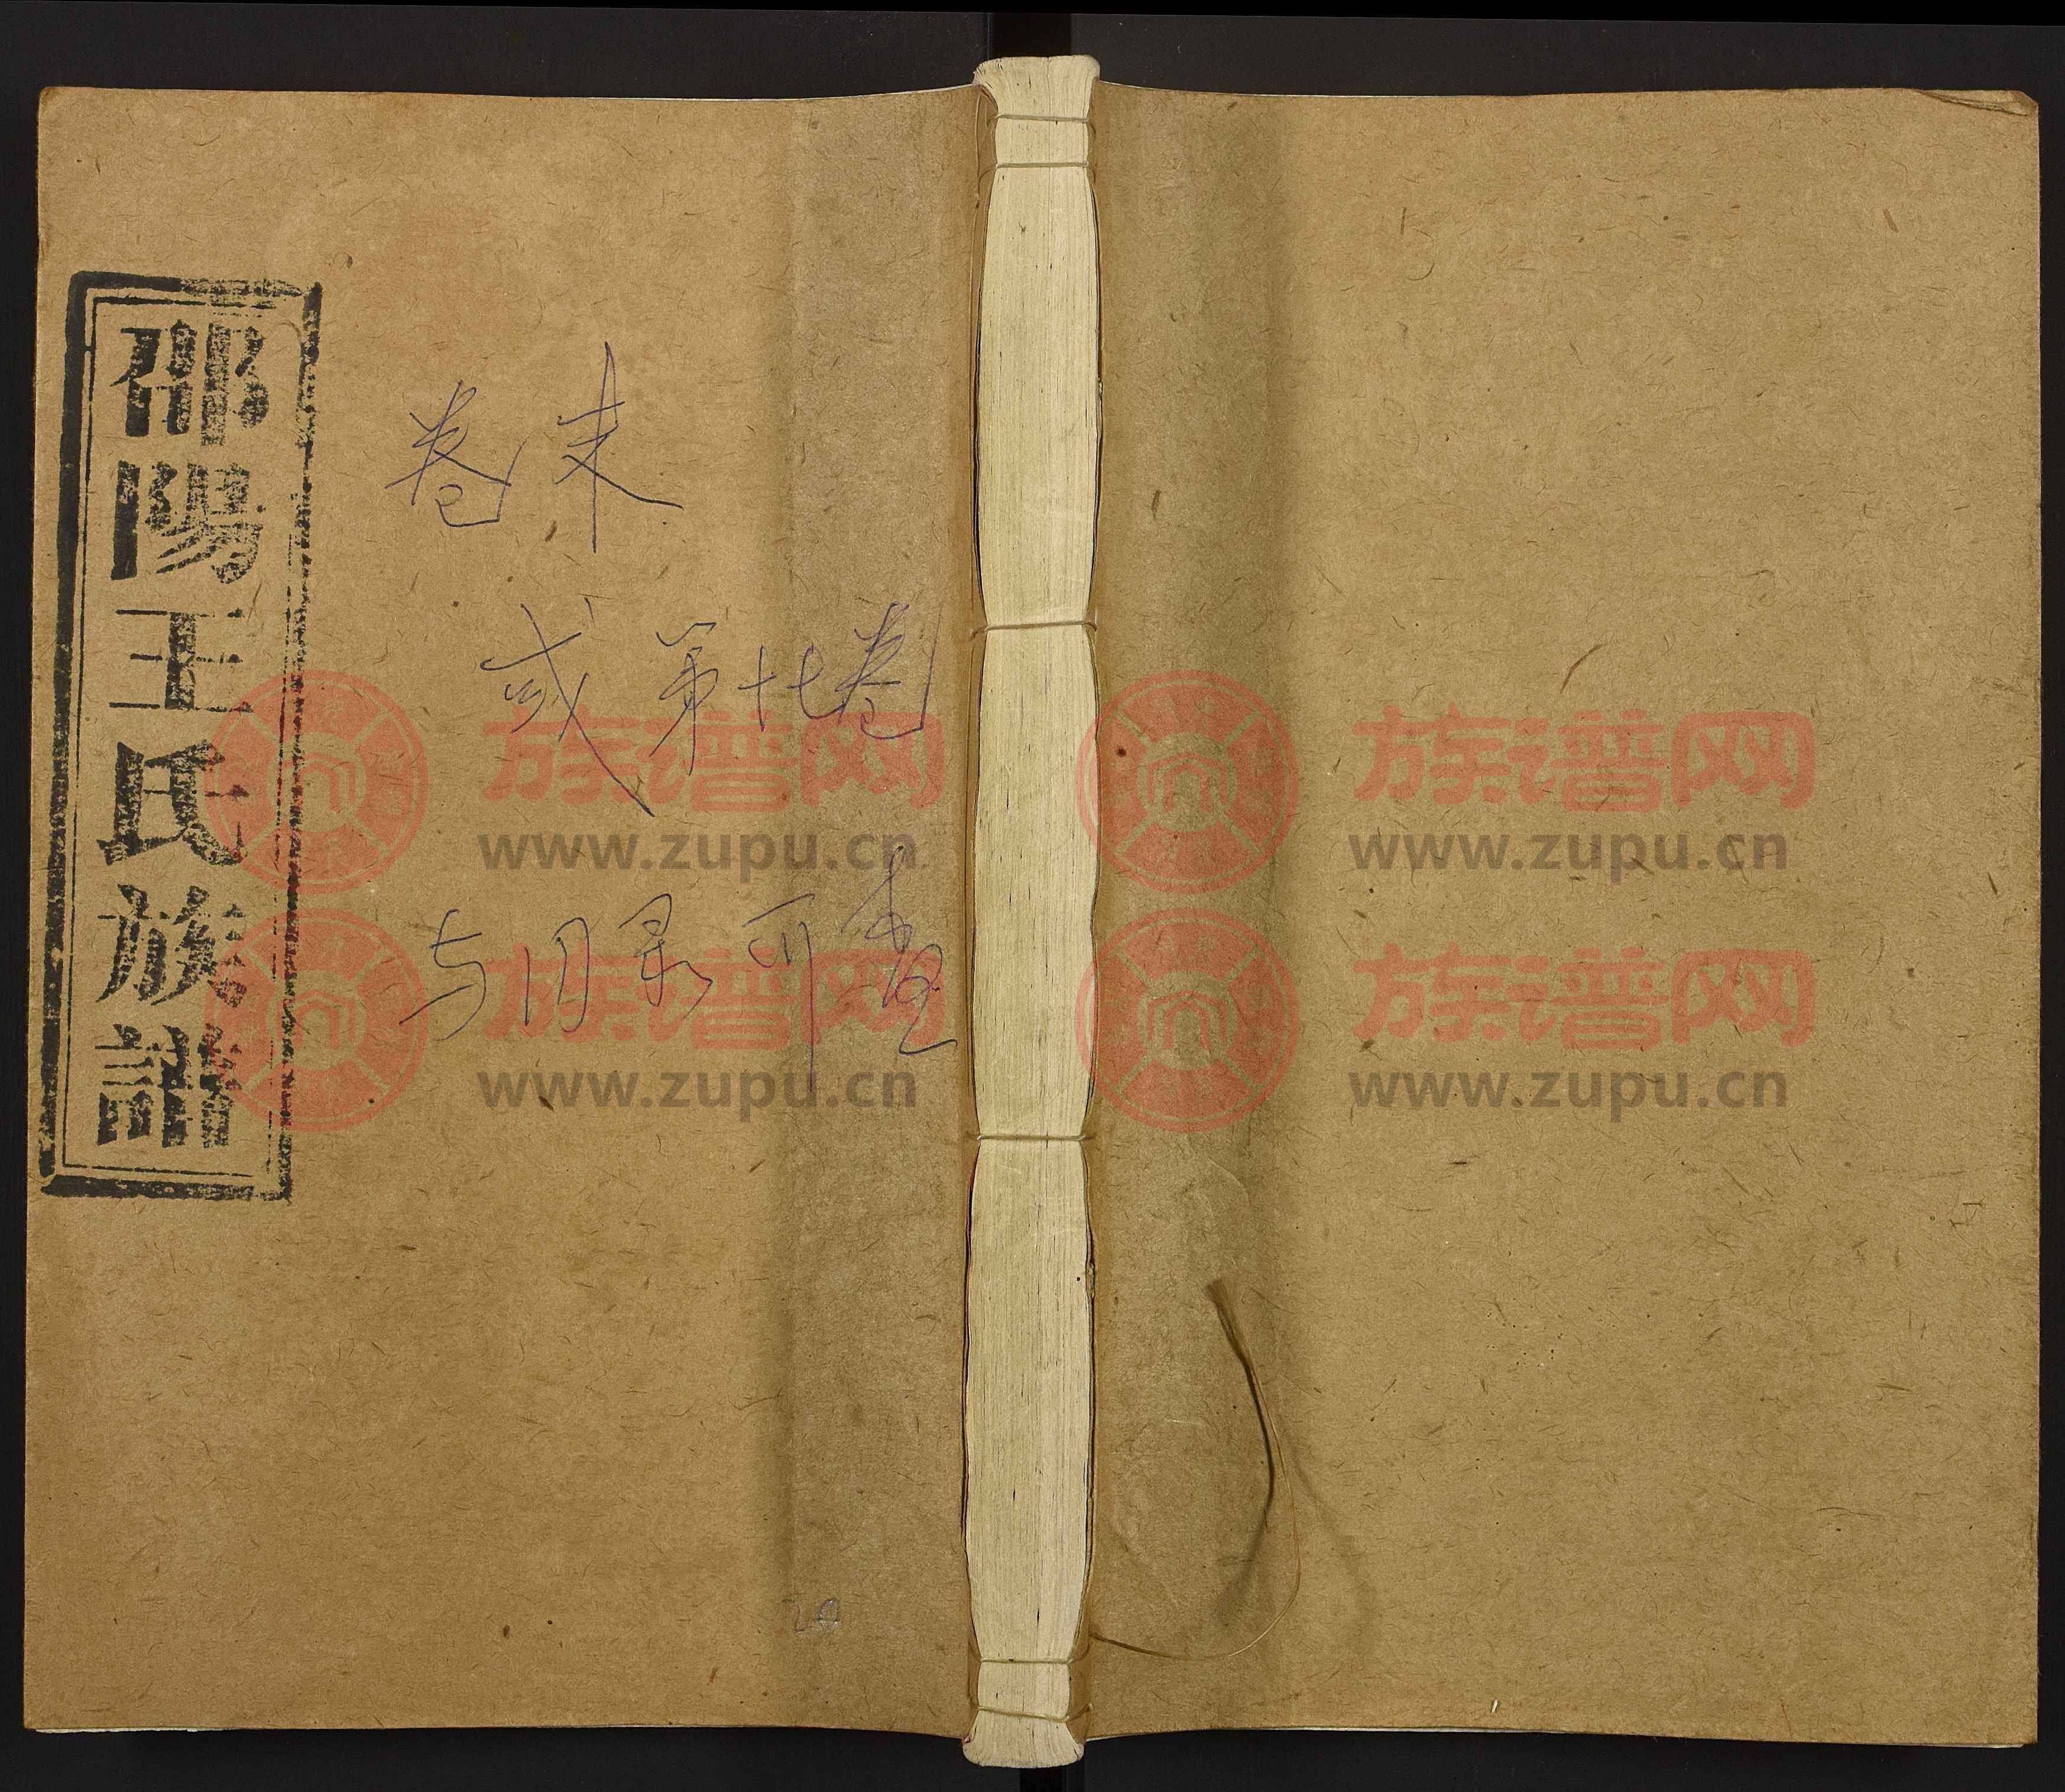 邵陽王氏族譜
卷末
或第十七卷
与目录可查
20
族谱网
www.zupu.cn
族谱网
www.zupu.cn
族谱网
www.zupu.cn
族谱网
www.zupu.cn